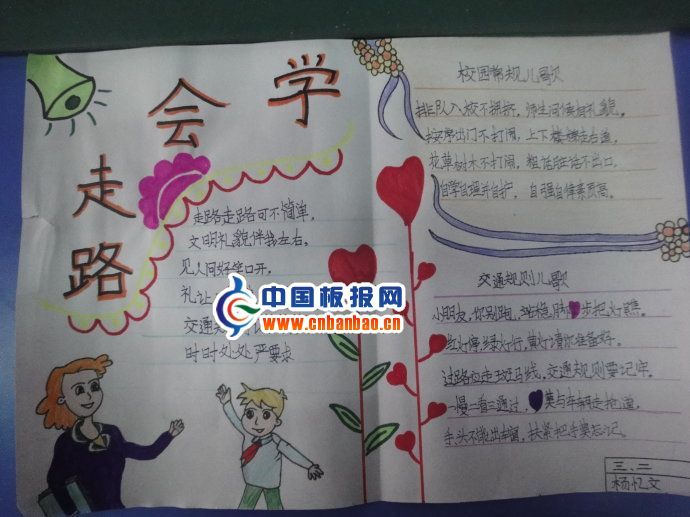 学会走路
走路走路可不简单，
文明礼貌伴我左右。
见人问好笑口开，
礼让
交通
时时处处严要求
中国板报网
www.cnbanbao.cn
校园常规儿歌
排队入校不拥挤，师生问候有礼貌。
按序出门不打闹，上下楼梯走右道。
花草树木不打闹，粗话脏话不出口。
自学自理并自护，自强自律素质高。
交通规则儿歌
小朋友，你别跑，站稳脚步把灯瞧。
红灯停，绿灯行，黄灯请你准备好。
过路应走斑马线，交通规则要记牢。
一慢二看三通过，莫与车辆走抢道。
手头不能出车窗，扶紧把手莫忘记。
三、二
杨忆文